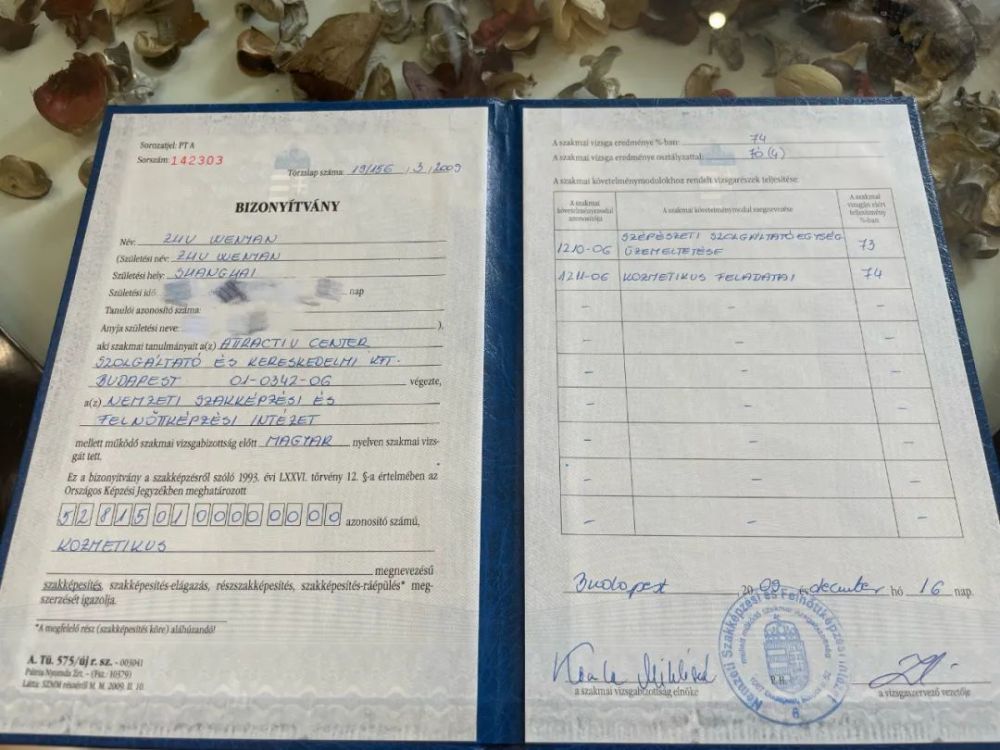 Sorozatjel: PT A
Sorszám: 142303
Törzslap száma: 19/156 / 3 / 2009
BIZONYÍTVÁNY
Név: ZHU WENYAN
(Születési név: ZHU WENYAN
Születési hely: SHANGHAI
Születési idő: nap
Tanulói azonosító száma:
Anyja születési neve: ).
aki szakmai tanulmányait a(z) ATRACTIV CENTER
SZOLGÁLTATÓ ÉS KERESKEDELMI KFT.
BUDAPEST 01-0342-06 végezte,
a(z) NEMZETI SZAKKÉPZÉSI ÉS
FELNŐTTKÉPZÉSI INTÉZET
mellett működő szakmai vizsgabizottság előtt MAGYAR nyelven szakmai vizs-
gát tett.
Ez a bizonyítvány a szakképzésről szóló 1993. évi LXXVI. törvény 12. §-a értelmében az
Országos Képzési Jegyzékben meghatározott
52 815 01 0000 00 00 azonosító számú,
KOZMETIKUS
megnevezésű
szakképesítés, szakképesítés-elágazás, részszakképesítés, szakképesítés-ráépülés* meg-
szerzését igazolja.
*A megfelelő rész (szakképesítés köre) aláhúzandó!
A. Tü. 575/új r. sz. - 003041
Pátria Nyomda Zrt. - (Fsz.: 10379)
Látta: SZMM részéről M. M. 2009. II. 10.
A szakmai vizsga eredménye %-ban: 74
A szakmai vizsga eredménye osztályzattal: JÓ (4)
A szakmai követelménymodulokhoz rendelt vizsgarészek teljesítése:
A szakmai követelménymodul azonosítója
A szakmai követelménymodul megnevezése
A szakmai vizsgán elért teljesítmény %-ban
1210-06 SZÉPÉSZETI SZOLGÁLTATÓ EGYSÉG ÜZEMELTETÉSE 73
1211-06 KOZMETIKUS FELADATAI 74
– – –
– – –
– – –
– – –
– – –
– – –
– – –
Budapest, 2009 év december hó 16 nap.
P. H.
a szakmai vizsgabizottság elnöke
a vizsgaszervező vezetője
Nemzeti Szakképzési és Felnőttképzési Intézet
mellett működő Szakmai Vizsgabizottság